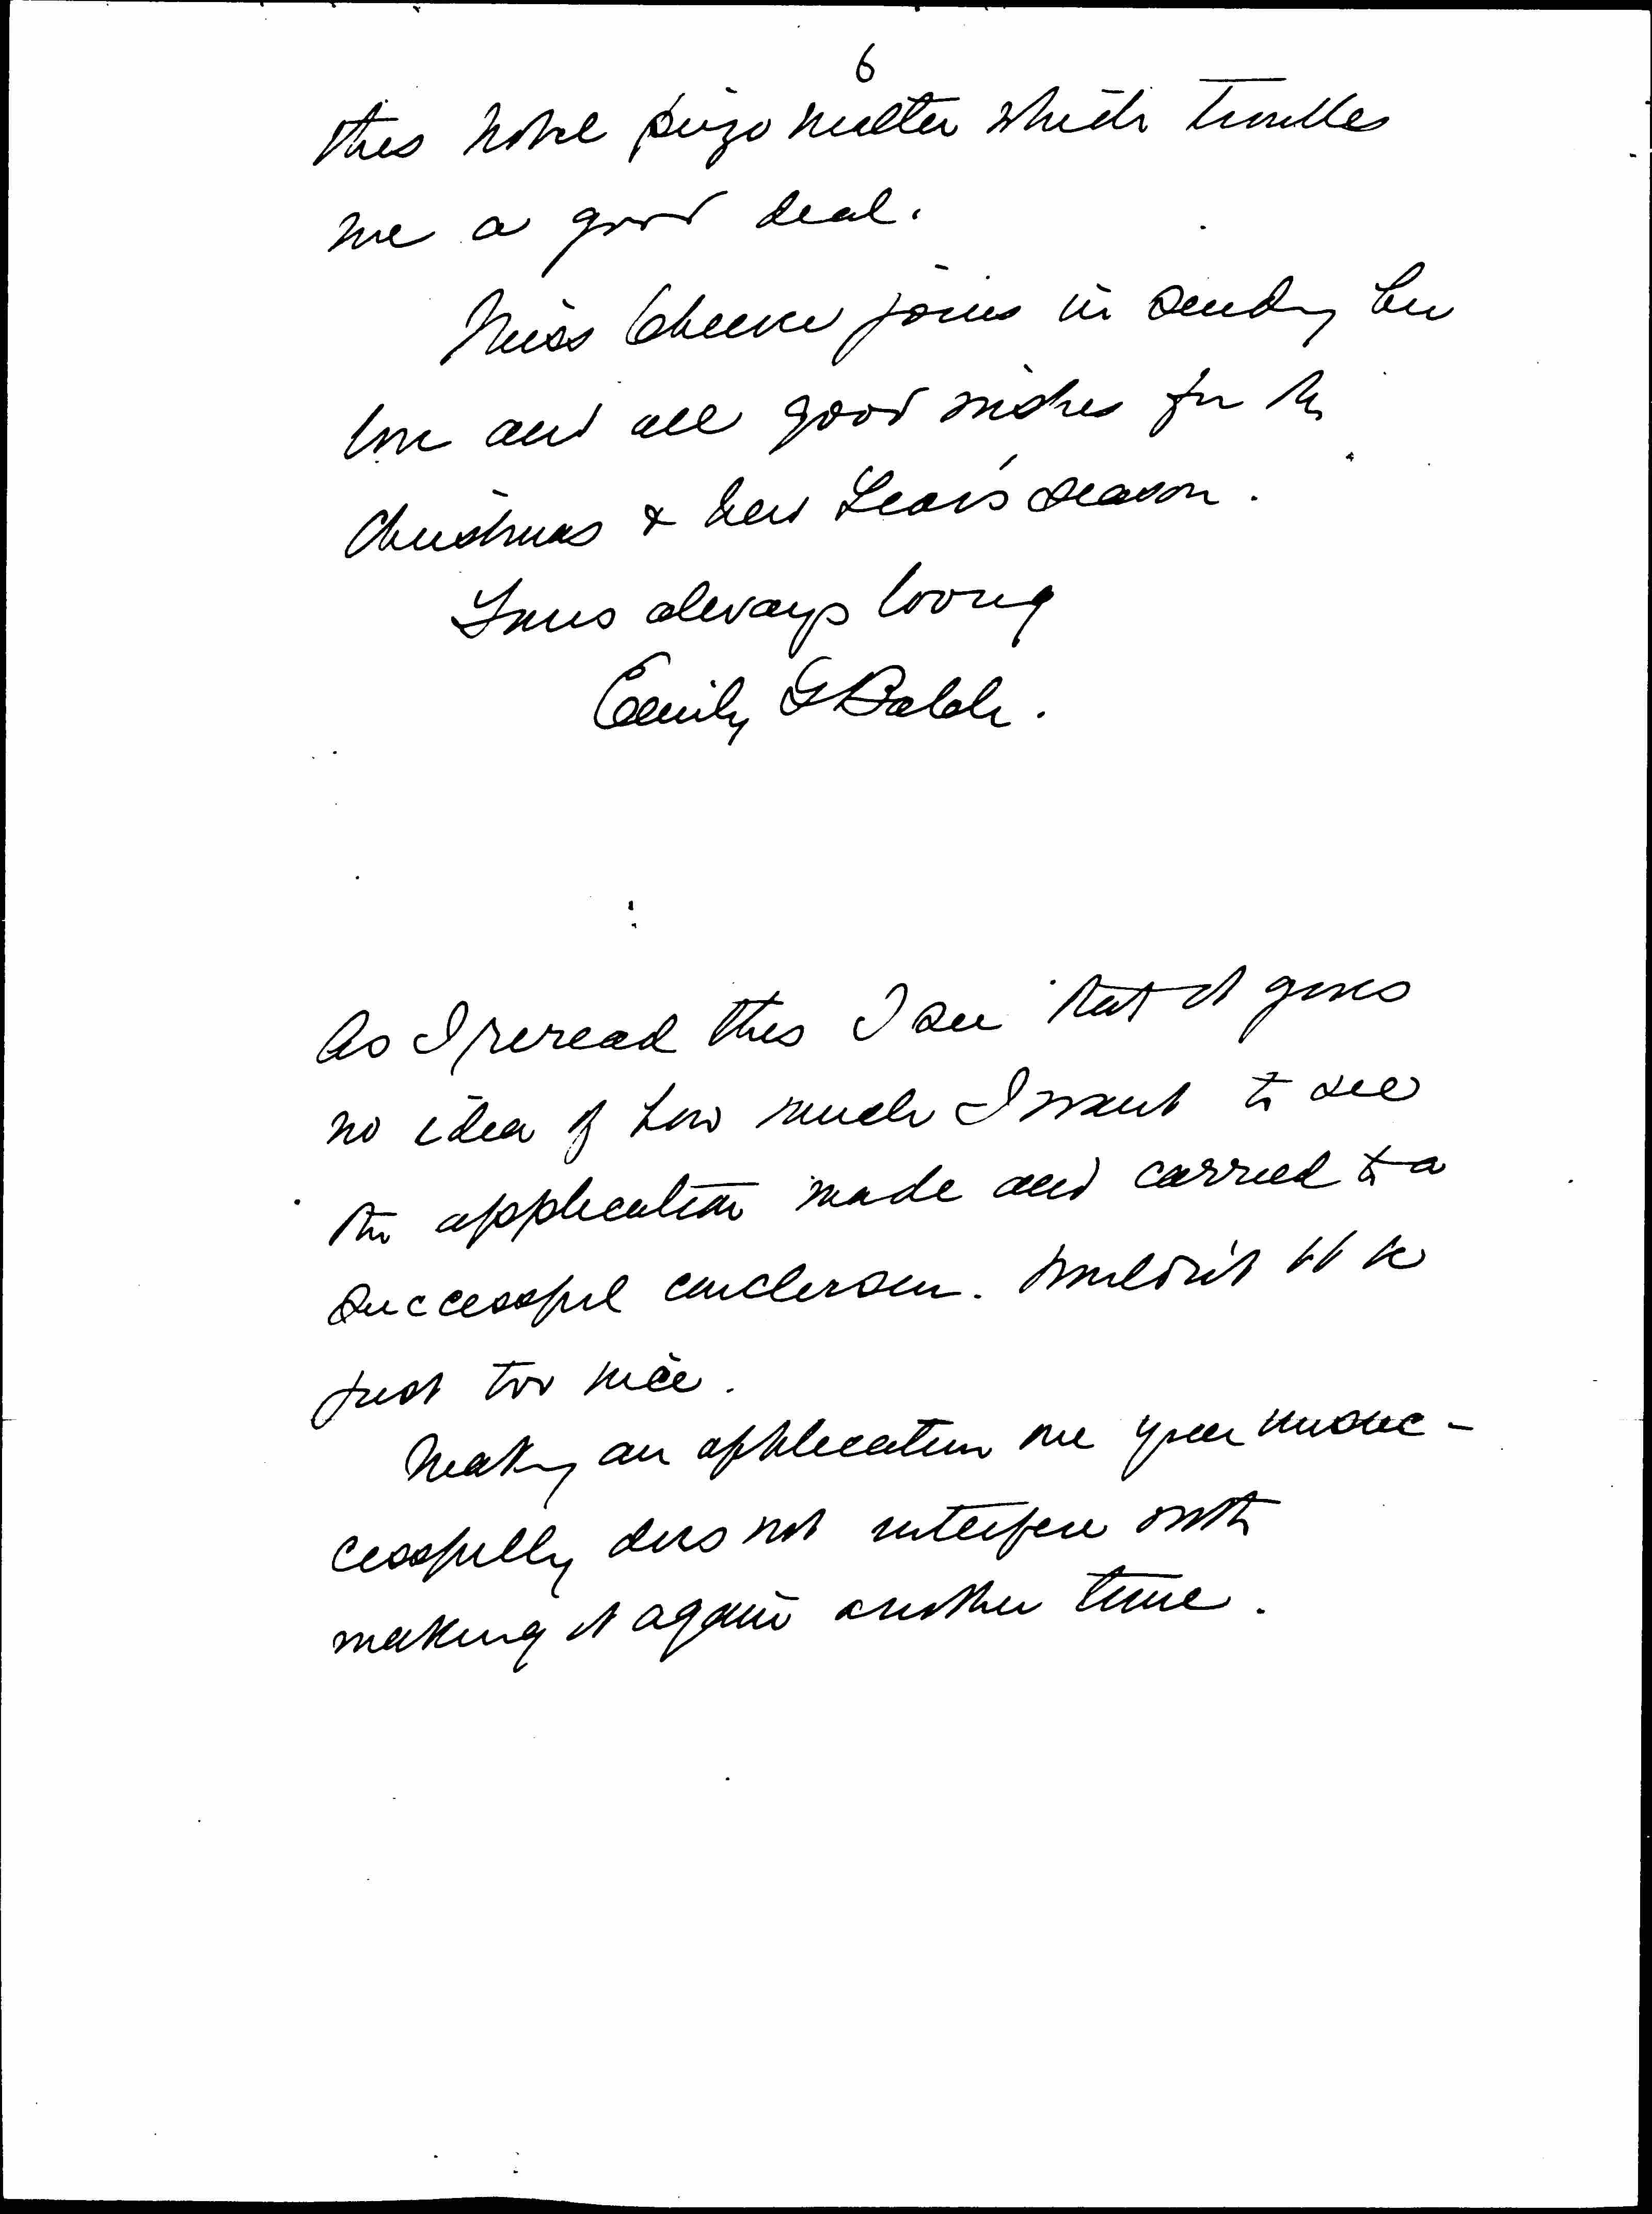 6
this Nobel prize matter which troubles
me a good deal.
Miss Cheever joins in sending her
love and all good wishes for the
Christmas & New Year's season.
Yours always loving
Emily G Balch.
As I reread this I see that it gives
no idea of how much I want to see
the application made and carried to a
successful conclusion. Wouldn't it be
just too nice.
Making an application one year unsuc-
cessfully does not interfere with
making it again another time.